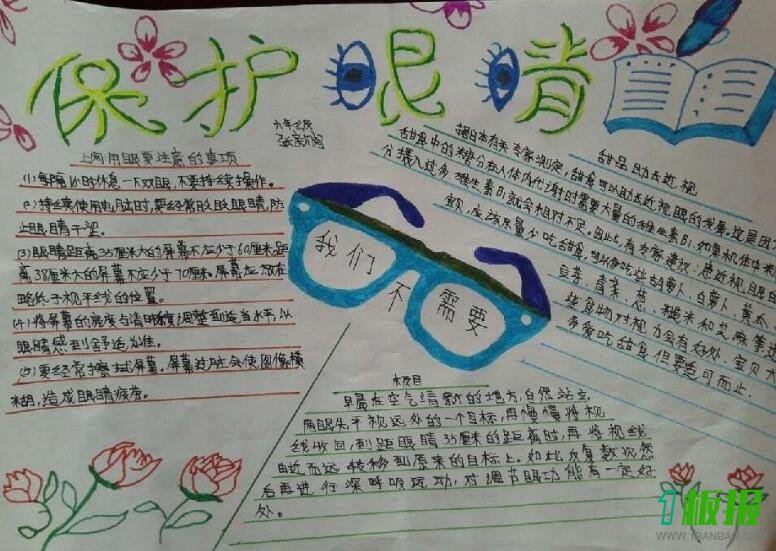 保护眼睛
六年之
上网用眼要注意的事项
(1)每隔1小时休息一下双眼,不要持续操作。
(2)持续使用电脑时,要经常眨眨眼睛,防
止眼睛干涩。
(3)眼睛距离35厘米大的屏幕不应少于60厘米,距
离38厘米大的屏幕不应少于70厘米。屏幕应放在
略低于视平线的位置。
(4)将屏幕的亮度与清晰度调整到适当水平,以
眼睛感到舒适为准。
(5)要经常擦拭屏幕。屏幕过脏会使图像模
糊,造成眼睛疲劳。
我们
不需要
甜品助去近视
据日本有关专家测定,甜食可以助去近视眼的发展。这是因
甜食中的糖分在人体内代谢时需要大量的维生素B1,如果机体中糖
分摄入过多,维生素B1就会相对不足。因此,有专家建议:患近视眼的
应该尽量少吃甜食,可以多吃些胡萝卜、白萝卜、黄瓜
豆芽、青菜、葱、糙米和芝麻等
些食物对视力会有好处。宝贝
多爱吃甜食但要适可而止.
极目
早晨在空气清新的地方,自然站立,
两眼先平视远处的一个目标,再慢慢将视
线收回,到距眼睛35厘米的距离时,再将视线
由近而远转移到原来的目标上。如此反复数次,然
后再进行深呼吸运动,对调节眼功能有一定好
处。
1板报
WWW.1BANBAO.COM